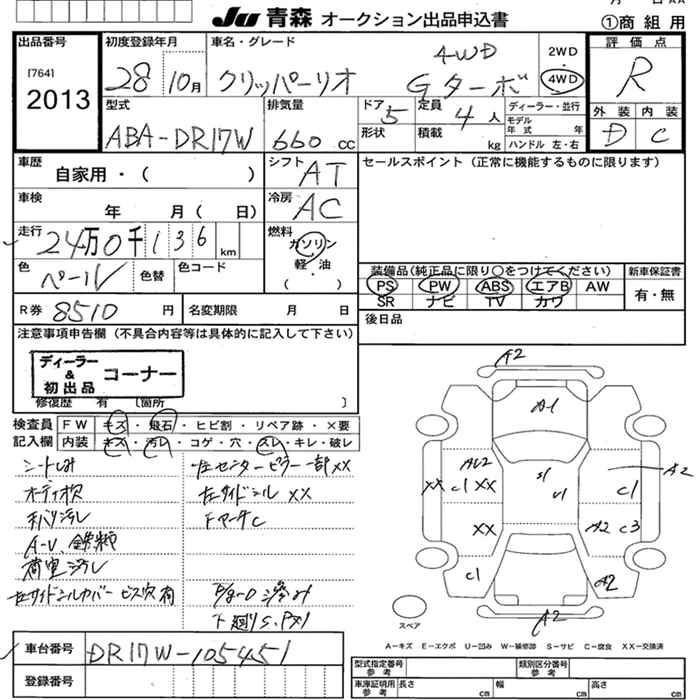 JU 青森 オークション出品申込書
①商 組 用
出品番号
[764]
2013
初度登録年月
28 10月
車名・グレード
クリッパーリオ 4WD Gターボ
2WD
4WD
評価点
R
外装 内装
D C
型式
ABA-DR17W
排気量
660 cc
ドア 5
形状
定員 4 人
積載 kg
ディーラー・並行
モデル 年式 年
ハンドル 左・右
車歴
自家用・( )
シフト AT
セールスポイント(正常に機能するものに限ります)
車検
年 月( 日)
冷房 AC
走行
24万0千136 km
燃料
ガソリン
軽・油
( ・ )
色
パール 色替 色コード
装備品(純正品に限り○をつけてください)
PS PW ABS エアB AW
SR ナビ TV カワ
新車保証書
有・無
R券 8510 円
名変期限 月 日
後日品
注意事項申告欄(不具合内容等は具体的に記入して下さい)
ディーラー & 初出品 コーナー
修復歴 有 〔箇所 〕
検査員 FW キズ・飛石・ヒビ割・リペア跡・×要
記入欄 内装 キズ・汚レ・コゲ・穴・スレ・キレ・破レ
シートしみ
左センターピラー一部XX
左サイドシルXX
荷室汚レ
左サイドシルカバー ビス穴有
下廻りS.PX1
A2
A1
AU2
XX C1 XX
S1
U1
C1
A2
XX
A2 C3
C1
A2
A2
スペア
A-キズ E-エクボ U-凹み W-補修跡 S-サビ C-腐食 XX-交換済
車台番号 DR17W-105451
登録番号
型式指定番号 参考
類別区分番号 参考
車庫証明用 参考 長さ cm 幅 cm 高さ cm